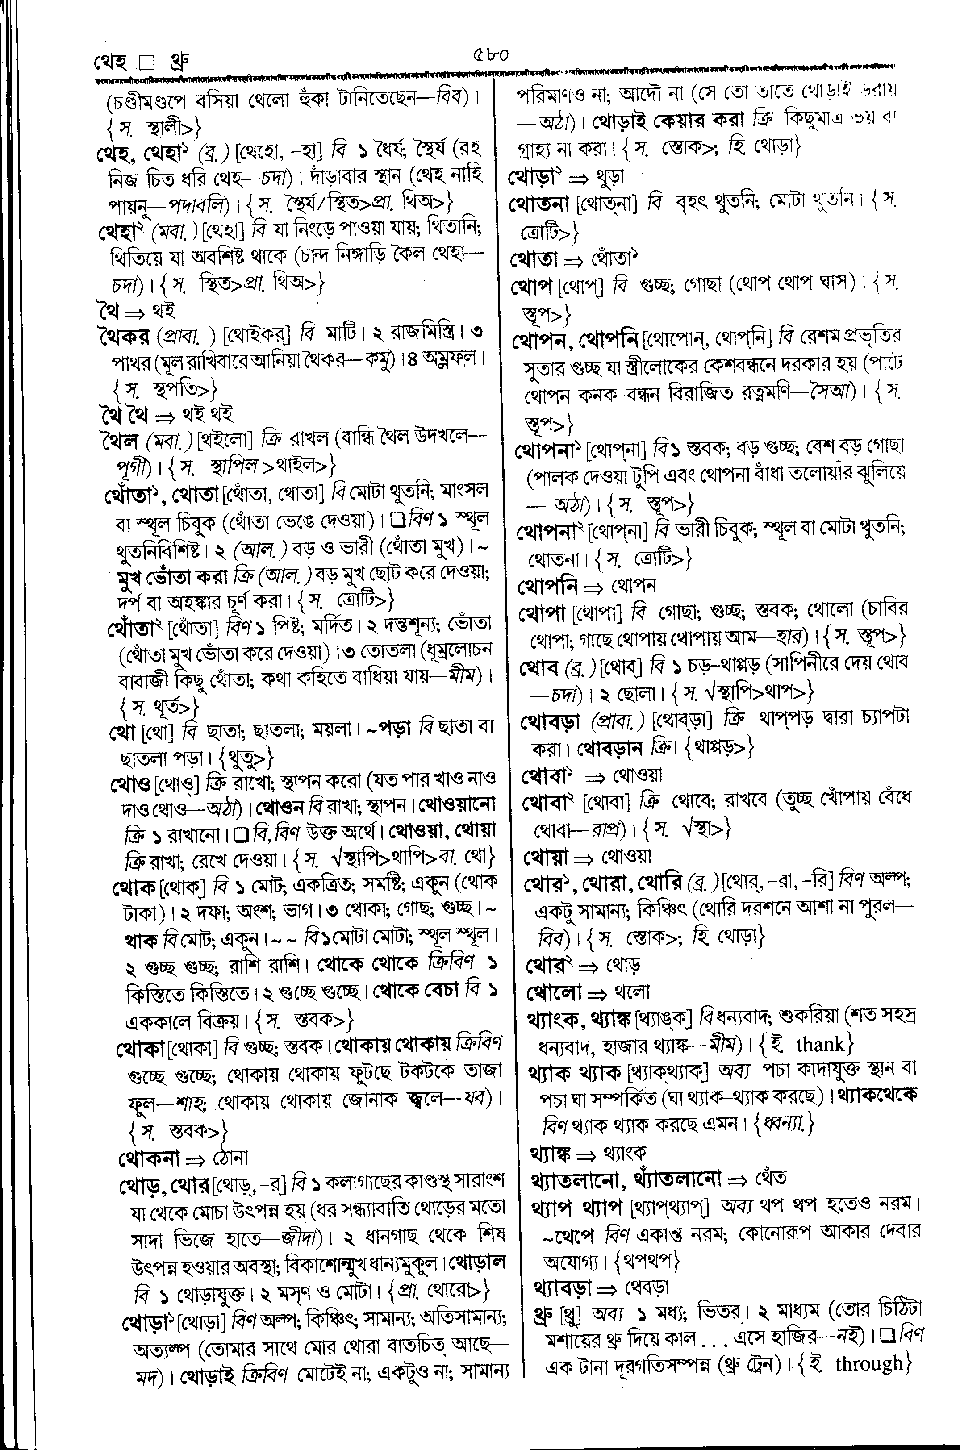 থেহ □ থ্রু
৫৮০
(চণ্ডীমণ্ডপে বসিয়া থেলো হুঁকা টানিতেছেন—বিব)।
{স. স্থালী>}
থেহ, থেহা১ (ব্র.) [থেহো, -হা] বি ১ ধৈর্য; স্থৈর্য (রহ
নিজ চিত ধরি থেহ– চদা) ; দাঁড়াবার স্থান (থেহ নাহি
পায়নু—পদাবলি)। {স. স্থৈর্য/স্থিত>প্রা. থিঅ>}
থেহা২ (মবা.) [থেহা] বি যা নিংড়ে পাওয়া যায়; থিতানি;
থিতিয়ে যা অবশিষ্ট থাকে (চান্দ নিঙ্গাড়ি কৈল থেহা—
চদা)। {স. স্থিত>প্রা. থিঅ>}
থৈ ⇒ থই
থৈকর (প্রাবা.) [থোইকর্] বি মাটি। ২ রাজমিস্ত্রি। ৩
পাথর (মূল রাখিবারে আনিয়া থৈকর—কমু)। ৪ অম্লফল।
{স. স্থপতি>}
থৈ থৈ ⇒ থই থই
থৈল (মবা.) [থইলো] ক্রি রাখল (বান্ধি থৈল উদখলে—
পূগী)। {স. স্থাপিল >থাইল>}
থোঁতা১, থোতা [থোঁতা, থোতা] বি মোটা থুতনি; মাংসল
বা স্থূল চিবুক (থোঁতা ভেঙে দেওয়া)। □ বিণ ১ স্থূল
থুতনিবিশিষ্ট। ২ (আল.) বড় ও ভারী (থোঁতা মুখ)। ~
মুখ ভোঁতা করা ক্রি (আল.) বড় মুখ ছোট করে দেওয়া;
দর্প বা অহঙ্কার চূর্ণ করা। {স. ত্রোটি>}
থোঁতা২ [থোঁতা] বিণ ১ পিষ্ট; মর্দিত। ২ দন্তশূন্য; ভোঁতা
(থোঁতা মুখ ভোঁতা করে দেওয়া) ; ৩ তোতলা (ধূম্রলোচন
বাবাজী কিছু থোঁতা; কথা কহিতে বাধিয়া যায়—মীম)।
{স. থূর্ত>}
থো [থো] বি ছাতা; ছাতলা; ময়লা। ~পড়া বি ছাতা বা
ছাতলা পড়া। {থুতু>}
থোও [থোও্] ক্রি রাখো; স্থাপন করো (যত পার খাও নাও
দাও থোও—অঠা)। থোওন বি রাখা; স্থাপন। থোওয়ানো
ক্রি ১ রাখানো। □ বি,বিণ উক্ত অর্থে। থোওয়া, থোয়া
ক্রি রাখা; রেখে দেওয়া। {স. √স্থাপি>থাপি>বা. থো}
থোক [থোক্] বি ১ মোট; একত্রিত; সমষ্টি; একুন (থোক
টাকা)। ২ দফা; অংশ; ভাগ। ৩ থোকা; গোছ; গুচ্ছ। ~
থাক বি মোট; একুন। ~ ~ বি ১ মোটা মোটা; স্থূল স্থূল।
২ গুচ্ছ গুচ্ছ; রাশি রাশি। থোকে থোকে ক্রিবিণ ১
কিস্তিতে কিস্তিতে। ২ গুচ্ছে গুচ্ছে। থোকে বেচা বি ১
এককালে বিক্রয়। {স. স্তবক>}
থোকা [থোকা] বি গুচ্ছ; স্তবক। থোকায় থোকায় ক্রিবিণ
গুচ্ছে গুচ্ছে; থোকায় থোকায় ফুটছে টকটকে তাজা
ফুল—শাহ; থোকায় থোকায় জোনাক জ্বলে--যব)।
{স. স্তবক>}
থোকনা ⇒ ঠোনা
থোড়, থোর [থোড়্, -র্] বি ১ কলাগাছের কাণ্ডস্থ সারাংশ
যা থেকে মোচা উৎপন্ন হয় (ধর সন্ধ্যাবাতি থোড়ের মতো
সাদা ভিজে হাতে—জীদা)। ২ ধানগাছ থেকে শিষ
উৎপন্ন হওয়ার অবস্থা; বিকাশোন্মুখ ধান্যমুকুল। থোড়াল
বি ১ থোড়াযুক্ত। ২ মসৃণ ও মোটা। {প্রা. থোরো>}
থোড়া১ [থোড়া] বিণ অল্প; কিঞ্চিৎ; সামান্য; অতিসামান্য;
অত্যল্প (তোমার সাথে মোর থোরা বাতচিত্ আছে—
মদ)। থোড়াই ক্রিবিণ মোটেই না; একটুও না; সামান্য
পরিমাণও না; আদৌ না (সে তো তাতে থোড়াই ডরায়
—অঠা)। থোড়াই কেয়ার করা ক্রি কিছুমাত্র ভয় বা
গ্রাহ্য না করা। {স. স্তোক>; হি. থোড়া}
থোড়া২ ⇒ থুড়া
থোতনা [থোত্‌না] বি বৃহৎ থুতনি; মোটা থুতনি। {স.
ত্রোটি>}
থোতা ⇒ থোঁতা১
থোপ [থোপ্] বি গুচ্ছ; গোছা (থোপ থোপ ঘাস) : {স.
স্তূপ>}
থোপন, থোপনি [থোপোন্, থোপ্‌নি] বি রেশম প্রভৃতির
সুতার গুচ্ছ যা স্ত্রীলোকের কেশবন্ধনে দরকার হয় (পাটে
থোপন কনক বন্ধন বিরাজিত রত্নমণি—সৈআ)। {স.
স্তূপ>}
থোপনা১ [থোপ্‌না] বি ১ স্তবক; বড় গুচ্ছ; বেশ বড় গোছা
(পালক দেওয়া টুপি এবং থোপনা বাঁধা তলোয়ার ঝুলিয়ে
— অঠা)। {স. স্তূপ>}
থোপনা২ [থোপ্‌না] বি ভারী চিবুক; স্থূল বা মোটা থুতনি;
থোতনা। {স. ত্রোটি>}
থোপনি ⇒ থোপন
থোপা [থোপা] বি গোছা; গুচ্ছ; স্তবক; থোলো (চাবির
থোপা; গাছে থোপায় থোপায় আম—হার)। {স. স্তূপ>}
থোব (ব্র.) [থোব্] বি ১ চড়-থাপ্পড় (সাপিনীরে দেয় থোব
—চদা)। ২ ছোলা। {স. √স্থাপি>থাপ>}
থোবড়া (প্রাবা.) [থোব্‌ড়া] ক্রি থাপ্পড় দ্বারা চ্যাপটা
করা। থোবড়ান ক্রি। {থাপ্পড়>}
থোবা১ ⇒ থোওয়া
থোবা২ [থোবা] ক্রি থোবে; রাখবে (তুচ্ছ খোঁপায় বেঁধে
থোবা—রাপ্র)। {স. √স্থা>}
থোয়া ⇒ থোওয়া
থোর১, থোরা, থোরি (ব্র.) [থোর্, -রা, -রি] বিণ অল্প;
একটু সামান্য; কিঞ্চিৎ (থোরি দরশনে আশা না পুরল—
বিব)। {স. স্তোক>; হি. থোড়া}
থোর২ ⇒ থোড়
থোলো ⇒ থলো
থ্যাংক, থ্যাঙ্ক [থ্যাঙ্‌ক] বি ধন্যবাদ; শুকরিয়া (শত সহস্র
ধন্যবাদ, হাজার থ্যাঙ্ক--মীম)। {ই. thank}
থ্যাক থ্যাক [থ্যাক্‌থ্যাক্] অব্য পচা কাদাযুক্ত স্থান বা
পচা ঘা সম্পর্কিত (ঘা থ্যাক–থ্যাক করছে)। থ্যাকথেকে
বিণ থ্যাক থ্যাক করছে এমন। {ধ্বন্যা.}
থ্যাঙ্ক ⇒ থ্যাংক
থ্যাতলানো, থ্যাঁতলানো ⇒ থেঁত
থ্যাপ থ্যাপ [থ্যাপ্‌থ্যাপ্] অব্য থপ থপ হতেও নরম।
~থেপে বিণ একান্ত নরম; কোনোরূপ আকার দেবার
অযোগ্য। {থপথপ}
থ্যাবড়া ⇒ থেবড়া
থ্রু [থ্রু] অব্য ১ মধ্য; ভিতর। ২ মাধ্যম (তোর চিঠিটা
মশায়ের থ্রু দিয়ে কাল . . . এসে হাজির--নই)। □ বিণ
এক টানা দূরগতিসম্পন্ন (থ্রু ট্রেন)। {ই. through}